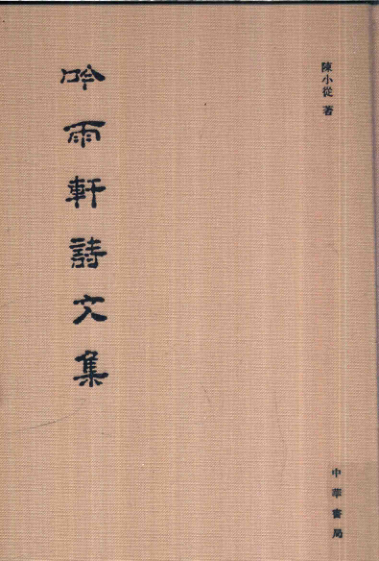 陳小從 著
吟雨軒詩文集
中華書局